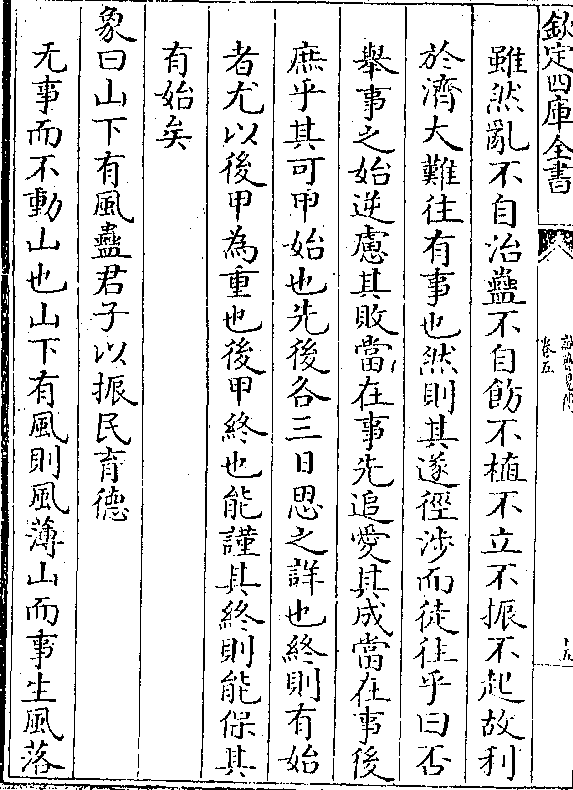 欽定四庫全書
卷五
雖然亂不自治蠱不自飭不植不立不振不起故利
於濟大難往有事也然則其遂徑涉而徒往乎曰否
舉事之始逆慮其敗當在事先追愛其成當在事後
庶乎其可甲始也先後各三日思之詳也終則有始
者尤以後甲為重也後甲終也能謹其終則能保其
有始矣
象曰山下有風蠱君子以振民育德
无事而不動山也山下有風則風薄山而事生風落